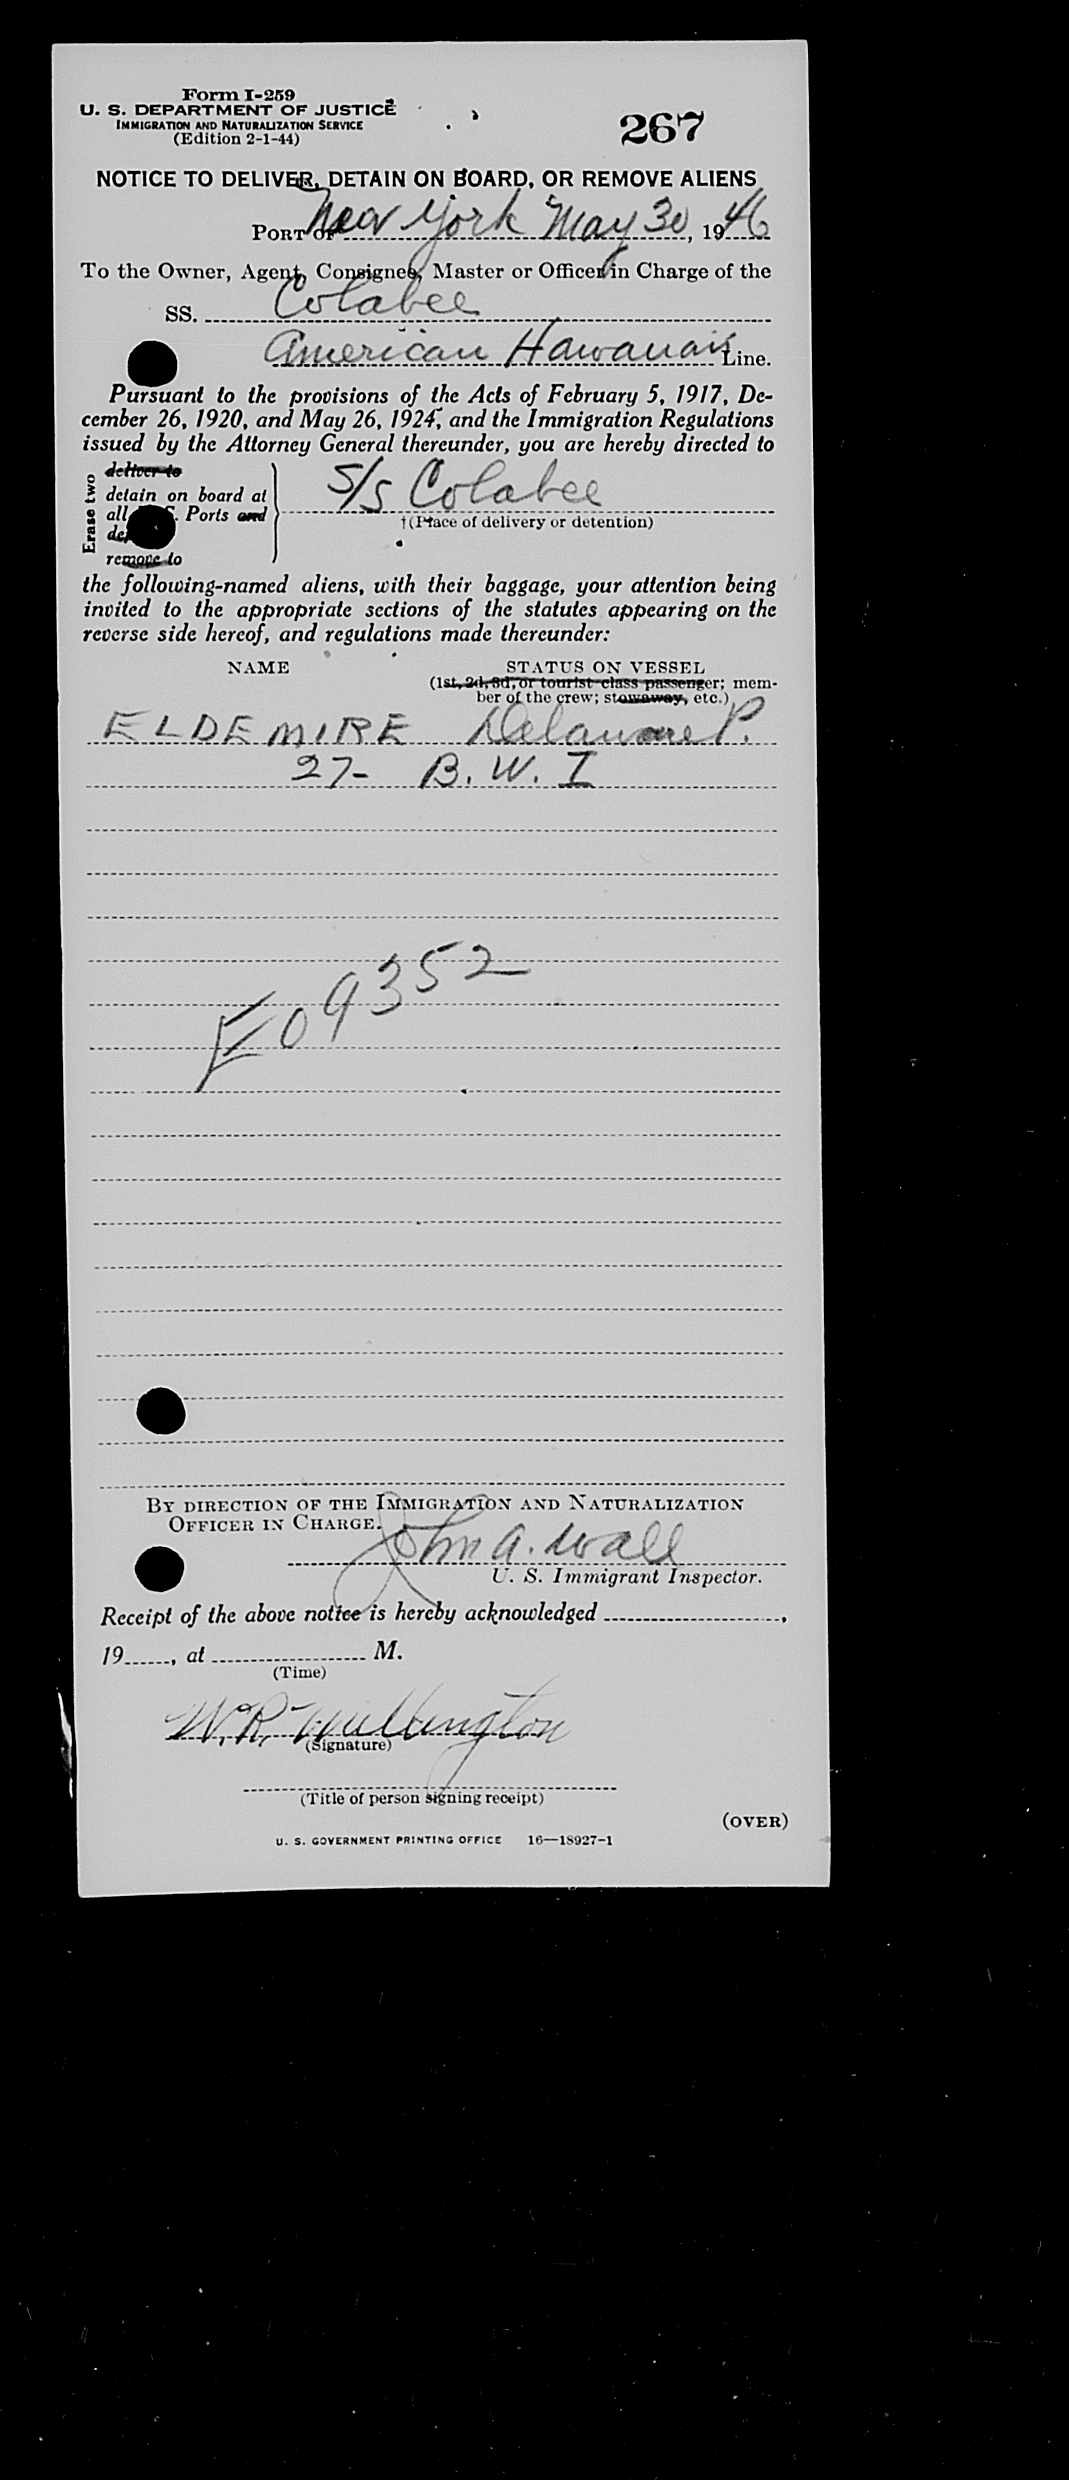 Form I-259
U. S. DEPARTMENT OF JUSTICE
IMMIGRATION AND NATURALIZATION SERVICE
(Edition 2-1-44)
267
NOTICE TO DELIVER, DETAIN ON BOARD, OR REMOVE ALIENS
PORT OF New York May 30, 1946
To the Owner, Agent, Consignee, Master or Officer in Charge of the
SS. Colabee
American Hawaiian Line.
Pursuant to the provisions of the Acts of February 5, 1917, De-
cember 26, 1920, and May 26, 1924, and the Immigration Regulations
issued by the Attorney General thereunder, you are hereby directed to
Erase two
deliver to
detain on board at
all Ports and
remove to
S/S Colabee
†(Place of delivery or detention)
the following-named aliens, with their baggage, your attention being
invited to the appropriate sections of the statutes appearing on the
reverse side hereof, and regulations made thereunder:
NAME STATUS ON VESSEL
(1st, 2d, 3d, or tourist class passenger; mem-
ber of the crew; stowaway, etc.)
ELDEMIRE Delaware P.
27- B. W. I
E09352
BY DIRECTION OF THE IMMIGRATION AND NATURALIZATION
OFFICER IN CHARGE.
John A. Wall
U. S. Immigrant Inspector.
Receipt of the above notice is hereby acknowledged ,
19 , at M.
(Time)
W. R.
(Signature)
(Title of person signing receipt)
(OVER)
U. S. GOVERNMENT PRINTING OFFICE 16—18927-1